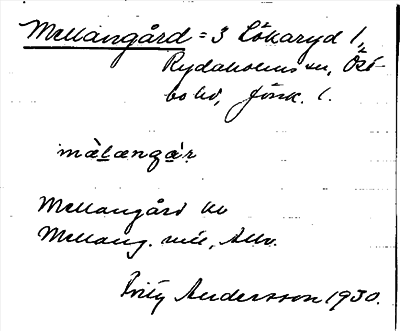 Mellangård = 3 Lökaryd 1,
Rydaholms sn, Öst-
bo hd, Jönk. l.
mälængár
Mellangård
Mellang.
Fritz Andersson 1930.